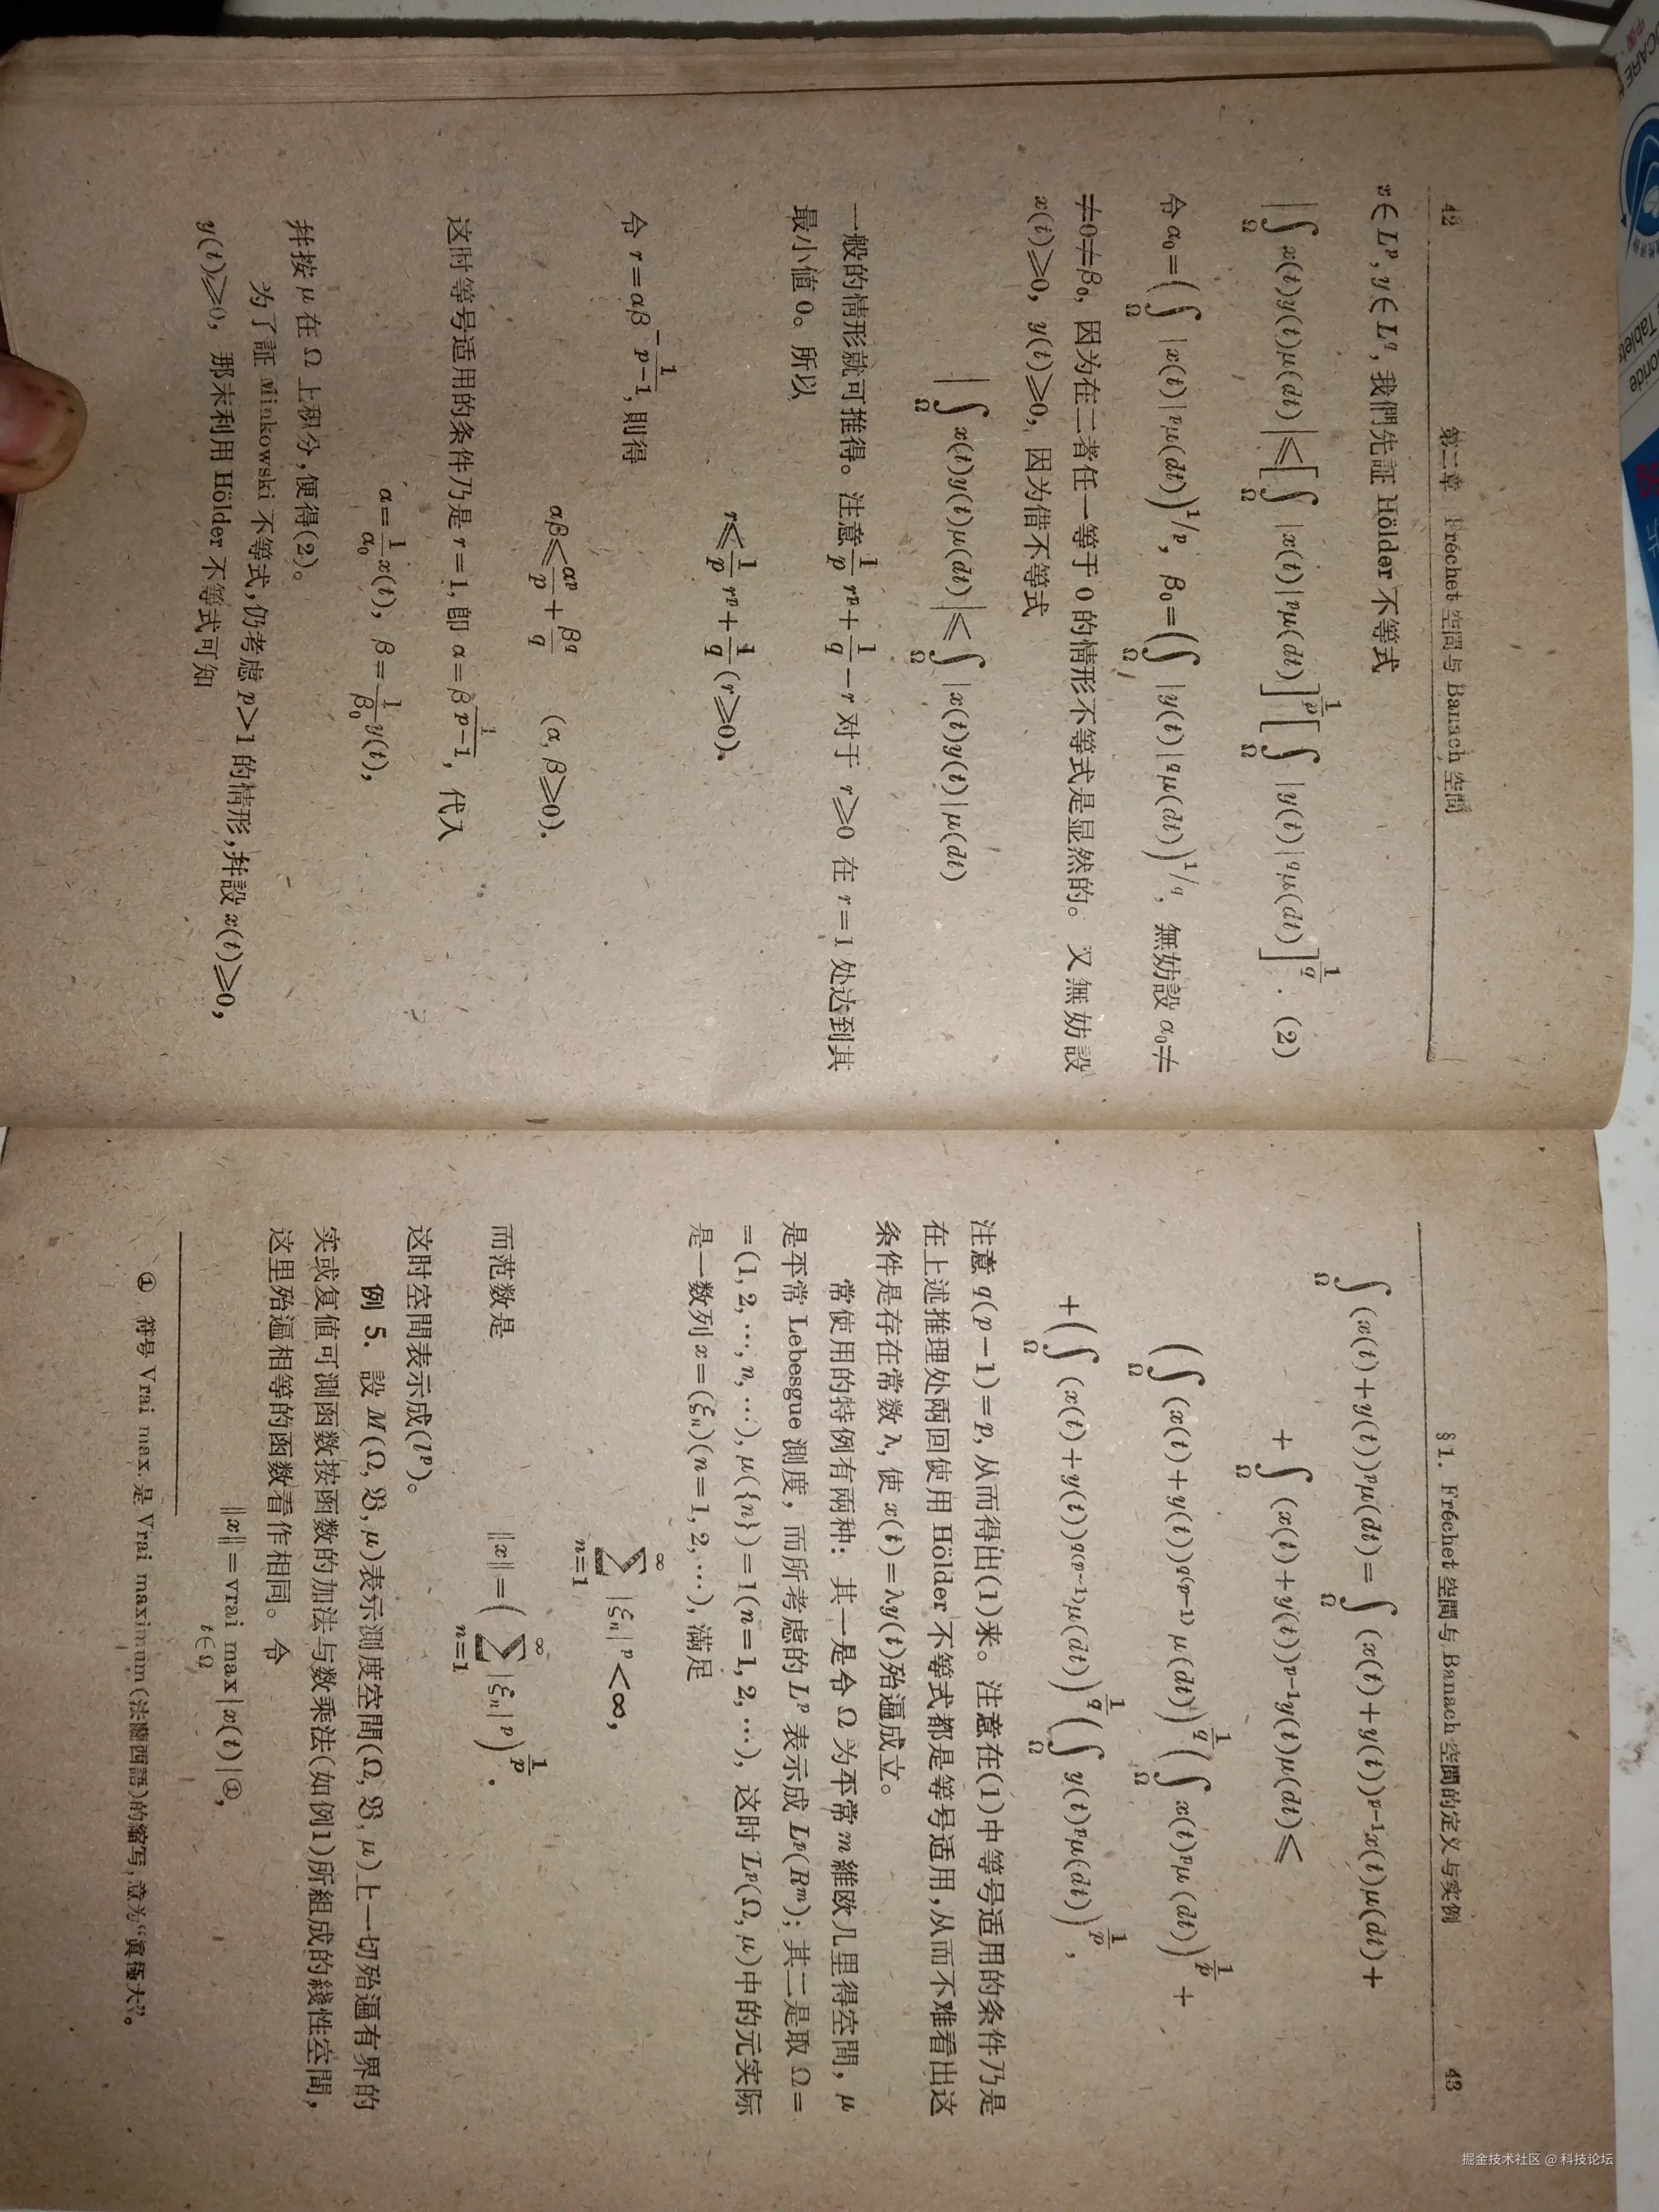 42
第二章 Fréchet 空間与 Banach 空間
x∈Lᵖ, y∈L^q, 我們先証 Hölder 不等式
|∫_Ω x(t)y(t)μ(dt)|⩽[∫_Ω |x(t)|ᵖμ(dt)]^{1/p}[∫_Ω |y(t)|^qμ(dt)]^{1/q}. (2)
令 α₀=(∫_Ω |x(t)|ᵖμ(dt))^{1/p}, β₀=(∫_Ω |y(t)|^qμ(dt))^{1/q}, 無妨設 α₀≠
≠0≠β₀, 因为在二者任一等于 0 的情形不等式是显然的。 又無妨設
x(t)⩾0, y(t)⩾0, 因为借不等式
|∫_Ω x(t)y(t)μ(dt)|⩽∫_Ω |x(t)y(t)|μ(dt)
一般的情形就可推得。注意 1/p rᵖ+1/q−r 对于 r⩾0 在 r=1 处达到其
最小值 0。所以
r⩽1/p rᵖ+1/q (r⩾0).
令 r=αβ^{−1/(p−1)}, 則得
αβ⩽αᵖ/p+β^q/q (α, β⩾0).
这时等号适用的条件乃是 r=1, 即 α=β^{1/(p−1)}, 代入
α=1/α₀ x(t), β=1/β₀ y(t),
并按 μ 在 Ω 上积分,便得(2)。
为了証 Minkowski 不等式,仍考虑 p>1 的情形,并設 x(t)⩾0,
y(t)⩾0, 那末利用 Hölder 不等式可知
§1. Fréchet 空間与 Banach 空間的定义与实例
43
∫_Ω (x(t)+y(t))ᵖμ(dt)=∫_Ω (x(t)+y(t))^{p−1}x(t)μ(dt)+
+∫_Ω (x(t)+y(t))^{p−1}y(t)μ(dt)⩽
(∫_Ω (x(t)+y(t))^{q(p−1)}μ(dt))^{1/q}(∫_Ω x(t)ᵖμ(dt))^{1/p}+
+(∫_Ω (x(t)+y(t))^{q(p−1)}μ(dt))^{1/q}(∫_Ω y(t)ᵖμ(dt))^{1/p},
注意 q(p−1)=p, 从而得出(1)来。注意在(1)中等号适用的条件乃是
在上述推理处兩回使用 Hölder 不等式都是等号适用,从而不难看出这
条件是存在常数 λ, 使 x(t)=λy(t)殆遍成立。
常使用的特例有兩种: 其一是令 Ω 为平常 m 維欧几里得空間, μ
是平常 Lebesgue 測度, 而所考虑的 Lᵖ 表示成 Lᵖ(Rᵐ); 其二是取 Ω=
=(1, 2, ⋯, n, ⋯), μ({n})=1(n=1, 2, ⋯), 这时 Lᵖ(Ω, μ)中的元实际
是一数列 x=(ξₙ)(n=1, 2, ⋯), 满足
∑_{n=1}^{∞} |ξₙ|ᵖ<∞,
而范数是
‖x‖=(∑_{n=1}^{∞} |ξₙ|ᵖ)^{1/p}.
这时空間表示成(lᵖ)。
例 5. 設 M(Ω, 𝔅, μ)表示測度空間(Ω, 𝔅, μ)上一切殆遍有界的
实或复值可測函数按函数的加法与数乘法(如例1)所組成的綫性空間,
这里殆遍相等的函数看作相同。令
‖x‖=vrai max_{t∈Ω}|x(t)|①,
① 符号 Vrai max.是 Vrai maximum(法蘭西語)的縮写,意为“眞極大”。
掘金技术社区 @ 科技论坛